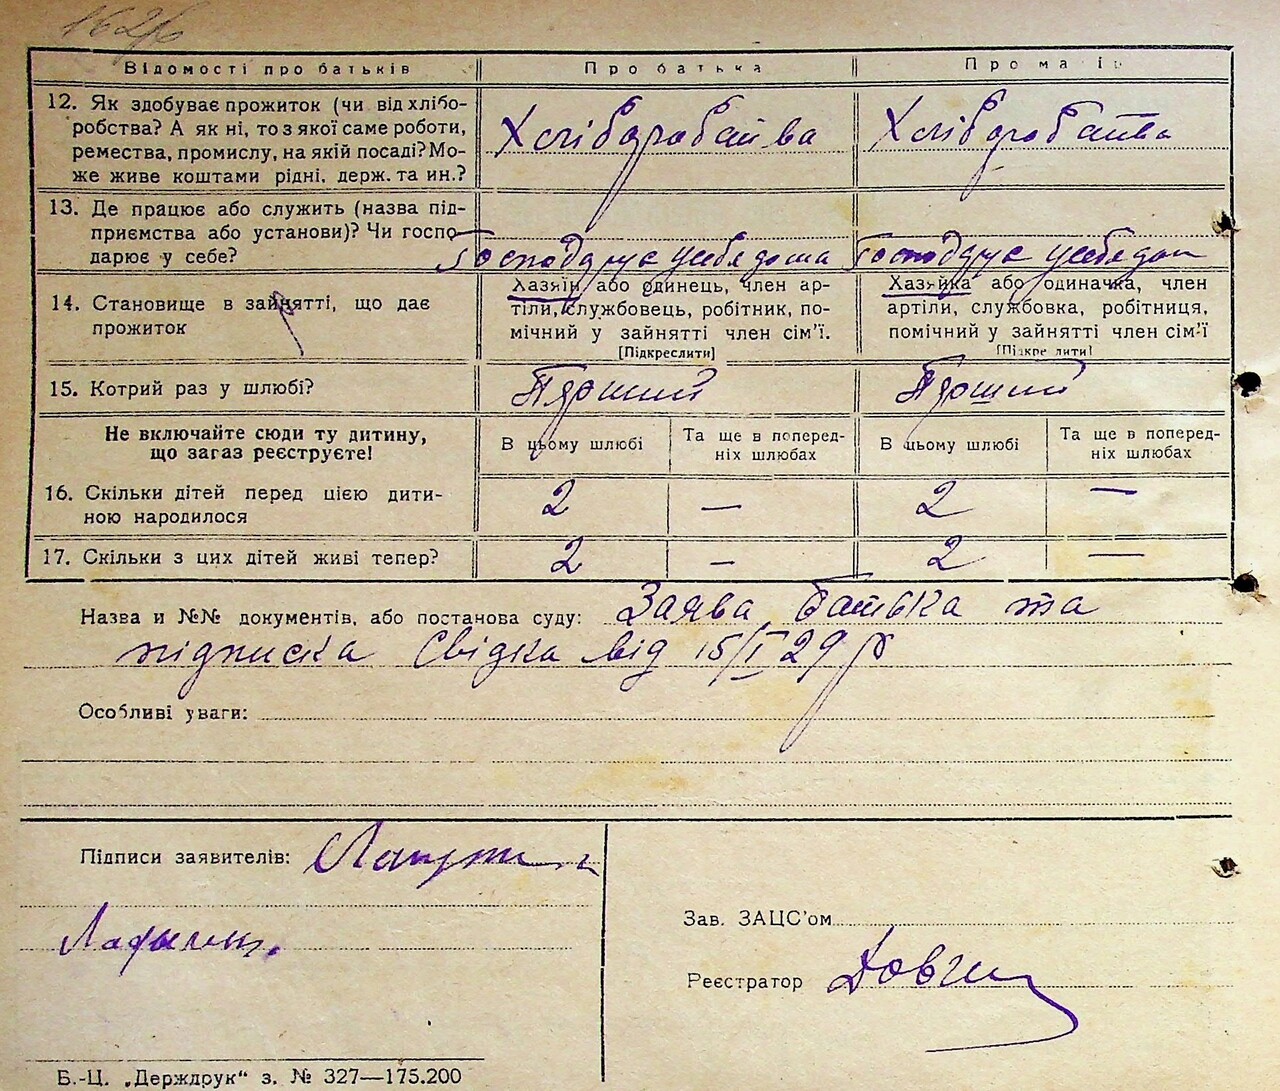 162б
Відомості про батьків Про батька Про матір
12. Як здобуває прожиток (чи від хлібо-
робства? А як ні, то з якої саме роботи,
ремества, промислу, на якій посаді? Мо-
же живе коштами рідні, держ. та ин.?
Хліборобства Хліборобства
13. Де працює або служить (назва під-
приємства або установи)? Чи госпо-
дарює у себе?
Господарує у себе дома Господарує у себе дом
14. Становище в зайнятті, що дає
прожиток
Хазяїн або одинець, член ар-
тіли, службовець, робітник, по-
мічний у зайнятті член сім'ї.
[Підкреслити]
Хазяйка або одиначка, член
артіли, службовка, робітниця,
помічний у зайнятті член сім'ї
[Підкреслити]
15. Котрий раз у шлюбі? Пярший Пярший
Не включайте сюди ту дитину,
що зараз реєструєте!
В цьому шлюбі
Та ще в поперед-
ніх шлюбах
В цьому шлюбі
Та ще в поперед-
ніх шлюбах
16. Скільки дітей перед цією дити-
ною народилося
2 — 2 —
17. Скільки з цих дітей живі тепер? 2 — 2 —
Назва и №№ документів, або постанова суду: Заява батька та
підписка Свідка від 15/I 29 р
Особливі уваги:
Підписи заявителів:
Зав. ЗАЦС'ом
Реєстратор
Б.-Ц. „Держдрук" з. № 327—175.200